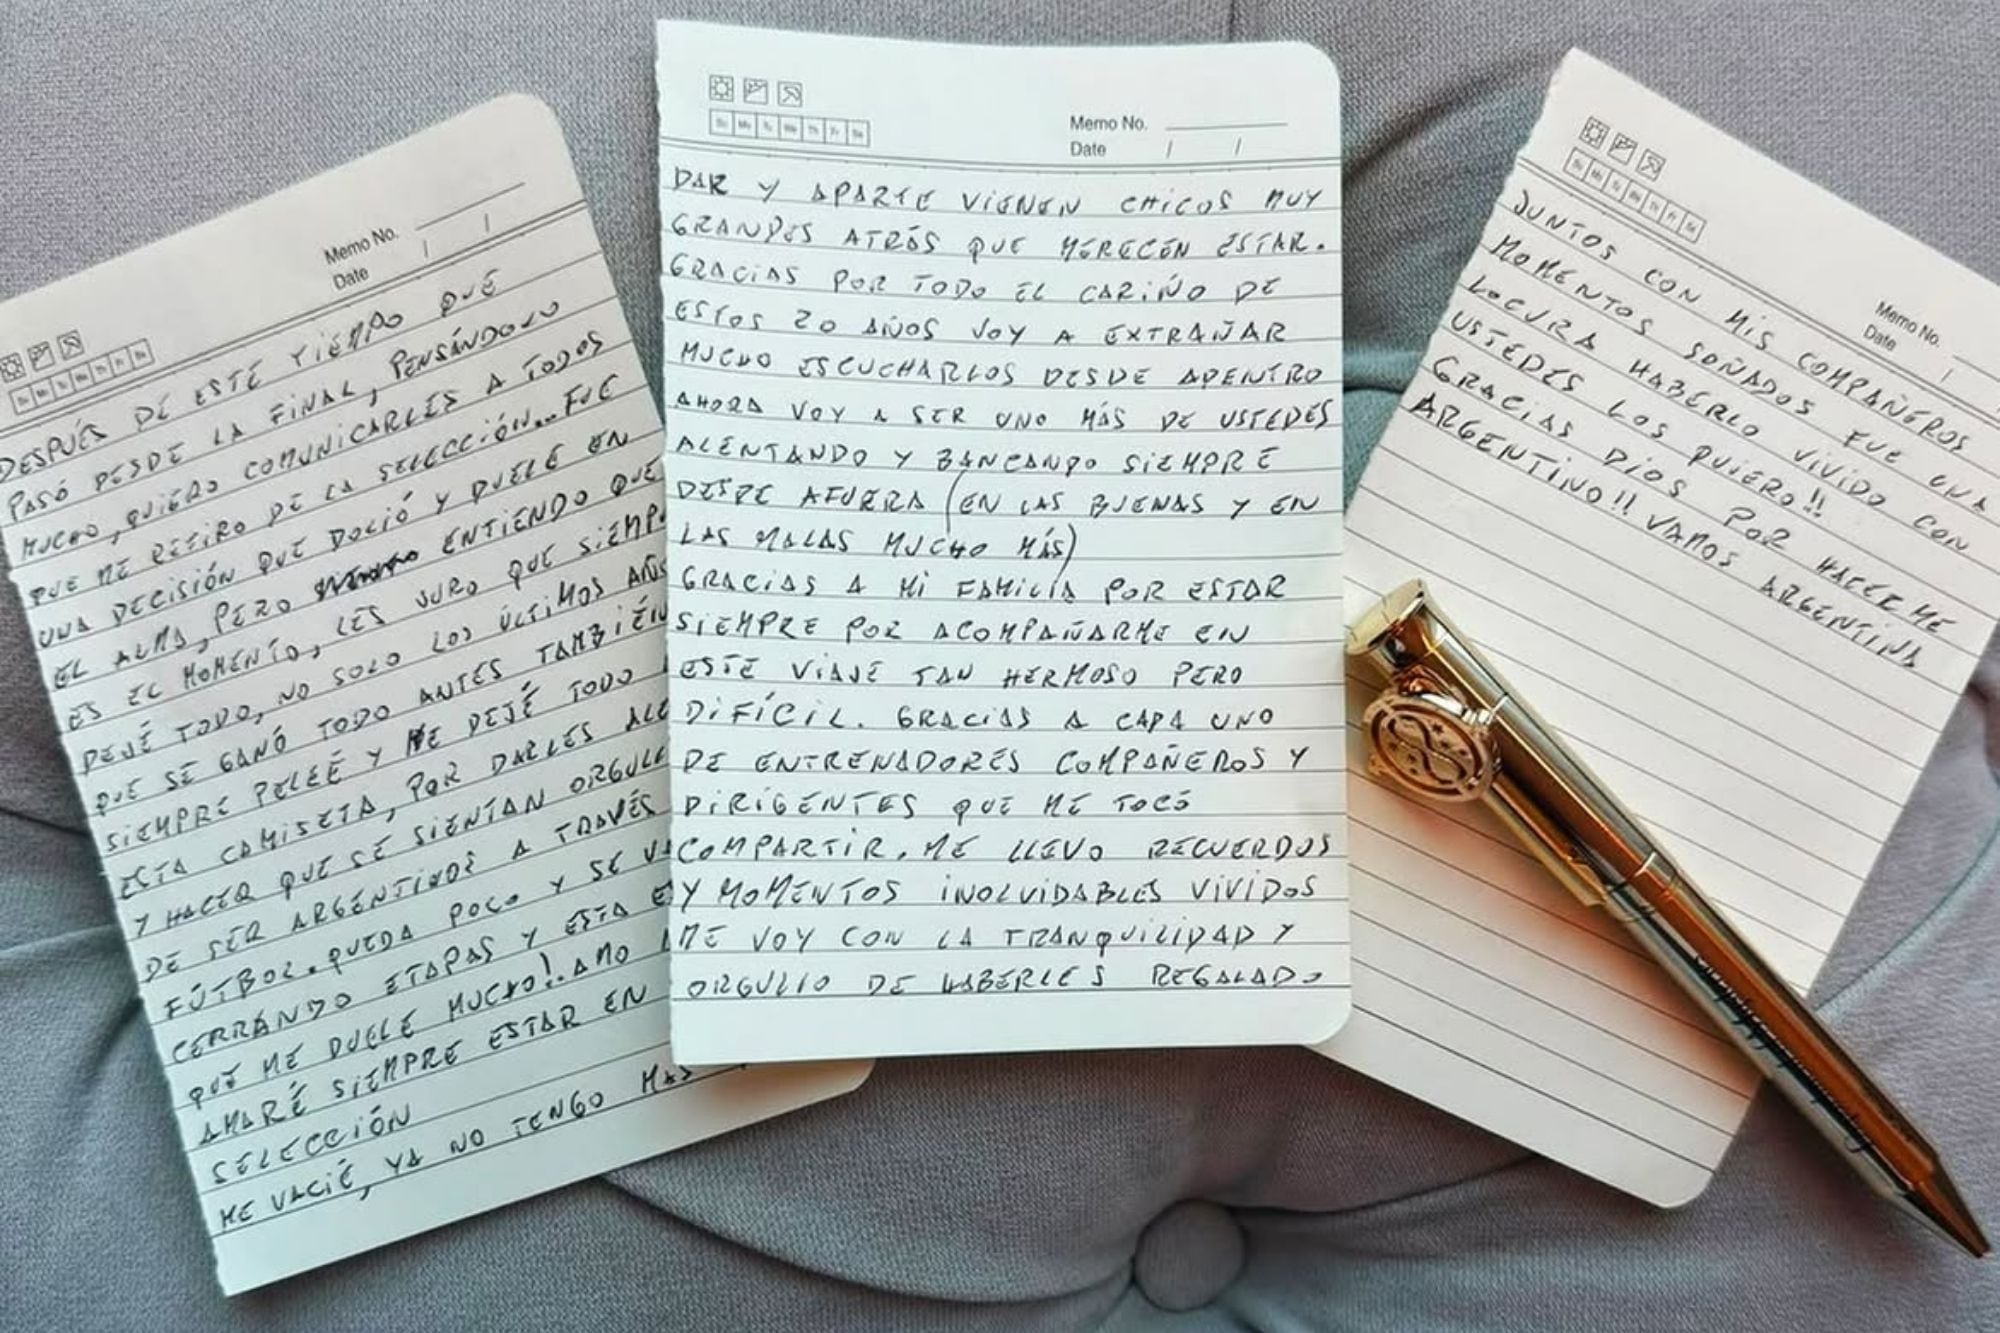 Memo No.
Date / /
DESPUÉS DE ESTE TIEMPO QUE
PASÓ DESDE LA FINAL, PENSÁNDOLO
MUCHO, QUIERO COMUNICARLES A TODOS
QUE ME RETIRO DE LA SELECCIÓN... FUE
UNA DECISIÓN QUE DOLIÓ Y DUELE EN
EL ALMA, PERO ENTIENDO QUE
ES EL MOMENTO, LES JURO QUE SIEMP
DEJÉ TODO, NO SOLO LOS ÚLTIMOS AÑ
QUE SE GANÓ TODO ANTES TAMBIÉN
SIEMPRE PELEÉ Y ME DEJÉ TODO
ESTA CAMISETA, POR DARLES ALE
Y HACER QUE SE SIENTAN ORGULL
DE SER ARGENTINOS A TRAVÉS
FÚTBOL. QUEDA POCO Y SE VA
CERRANDO ETAPAS Y ESTA E
QUE ME DUELE MUCHO!. AMO
AMARÉ SIEMPRE ESTAR EN
SELECCIÓN
ME VACIÉ, YA NO TENGO MAS
Su Mo Tu We Th Fr Sa
Memo No.
Date / /
DAR Y APARTE VIENEN CHICOS MUY
GRANDES ATRÁS QUE MERECEN ESTAR.
GRACIAS POR TODO EL CARIÑO DE
ESTOS 20 AÑOS VOY A EXTRAÑAR
MUCHO ESCUCHARLOS DESDE ADENTRO
AHORA VOY A SER UNO MÁS DE USTEDES
ALENTANDO Y BANCANDO SIEMPRE
DESDE AFUERA (EN LAS BUENAS Y EN
LAS MALAS MUCHO MÁS)
GRACIAS A MI FAMILIA POR ESTAR
SIEMPRE POR ACOMPAÑARME EN
ESTE VIAJE TAN HERMOSO PERO
DIFÍCIL. GRACIAS A CADA UNO
DE ENTRENADORES COMPAÑEROS Y
DIRIGENTES QUE ME TOCÓ
COMPARTIR. ME LLEVO RECUERDOS
Y MOMENTOS INOLVIDABLES VIVIDOS
ME VOY CON LA TRANQUILIDAD Y
ORGULLO DE HABERLES REGALADO
Memo No.
Date /
JUNTOS CON MIS COMPAÑEROS
MOMENTOS SOÑADOS FUE UNA
LOCURA HABERLO VIVIDO CON
USTEDES LOS QUIERO!!
GRACIAS DIOS POR HACERME
ARGENTINO!! VAMOS ARGENTINA